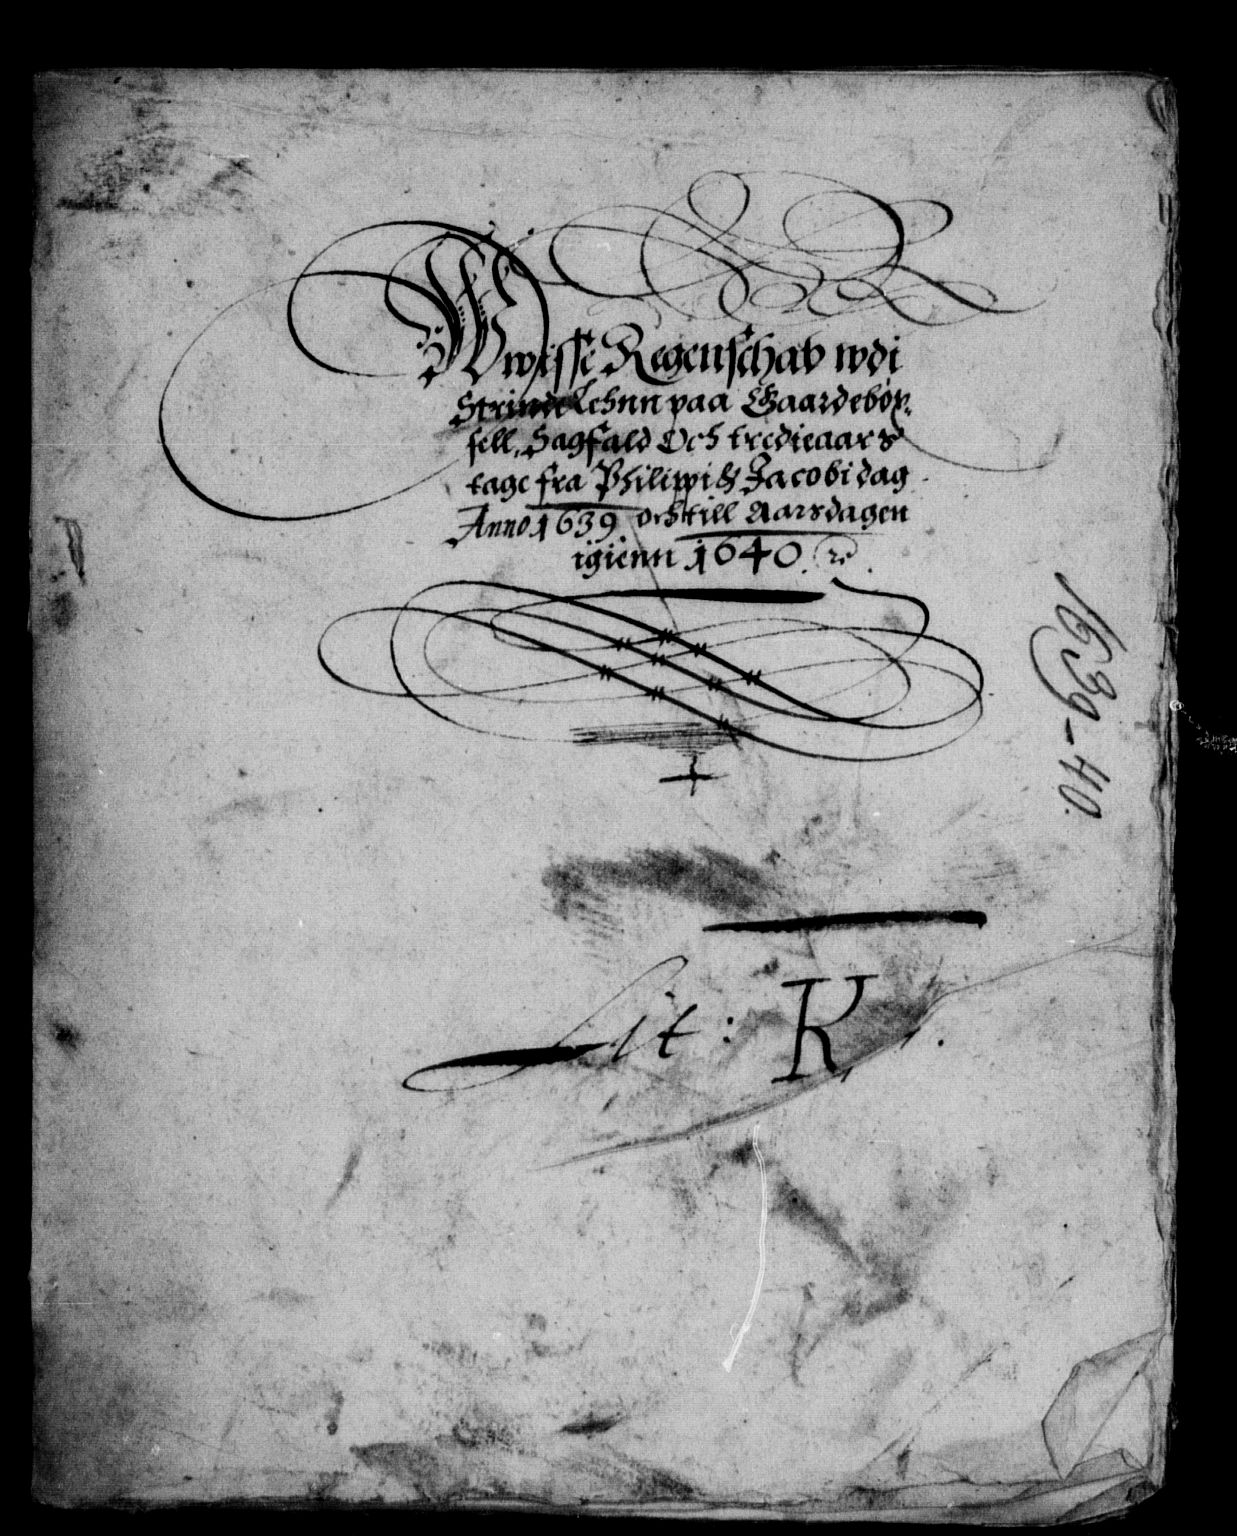 Wwisse Regenschab wdi
Strinde Lehnn paa Gaardebøx-
sell, Sagfald Och tredieaars
tage fra Philippi & Jacobi dag
Anno 1639 och till Aarsdagen
igienn 1640.
1639-40.
Lit: K.